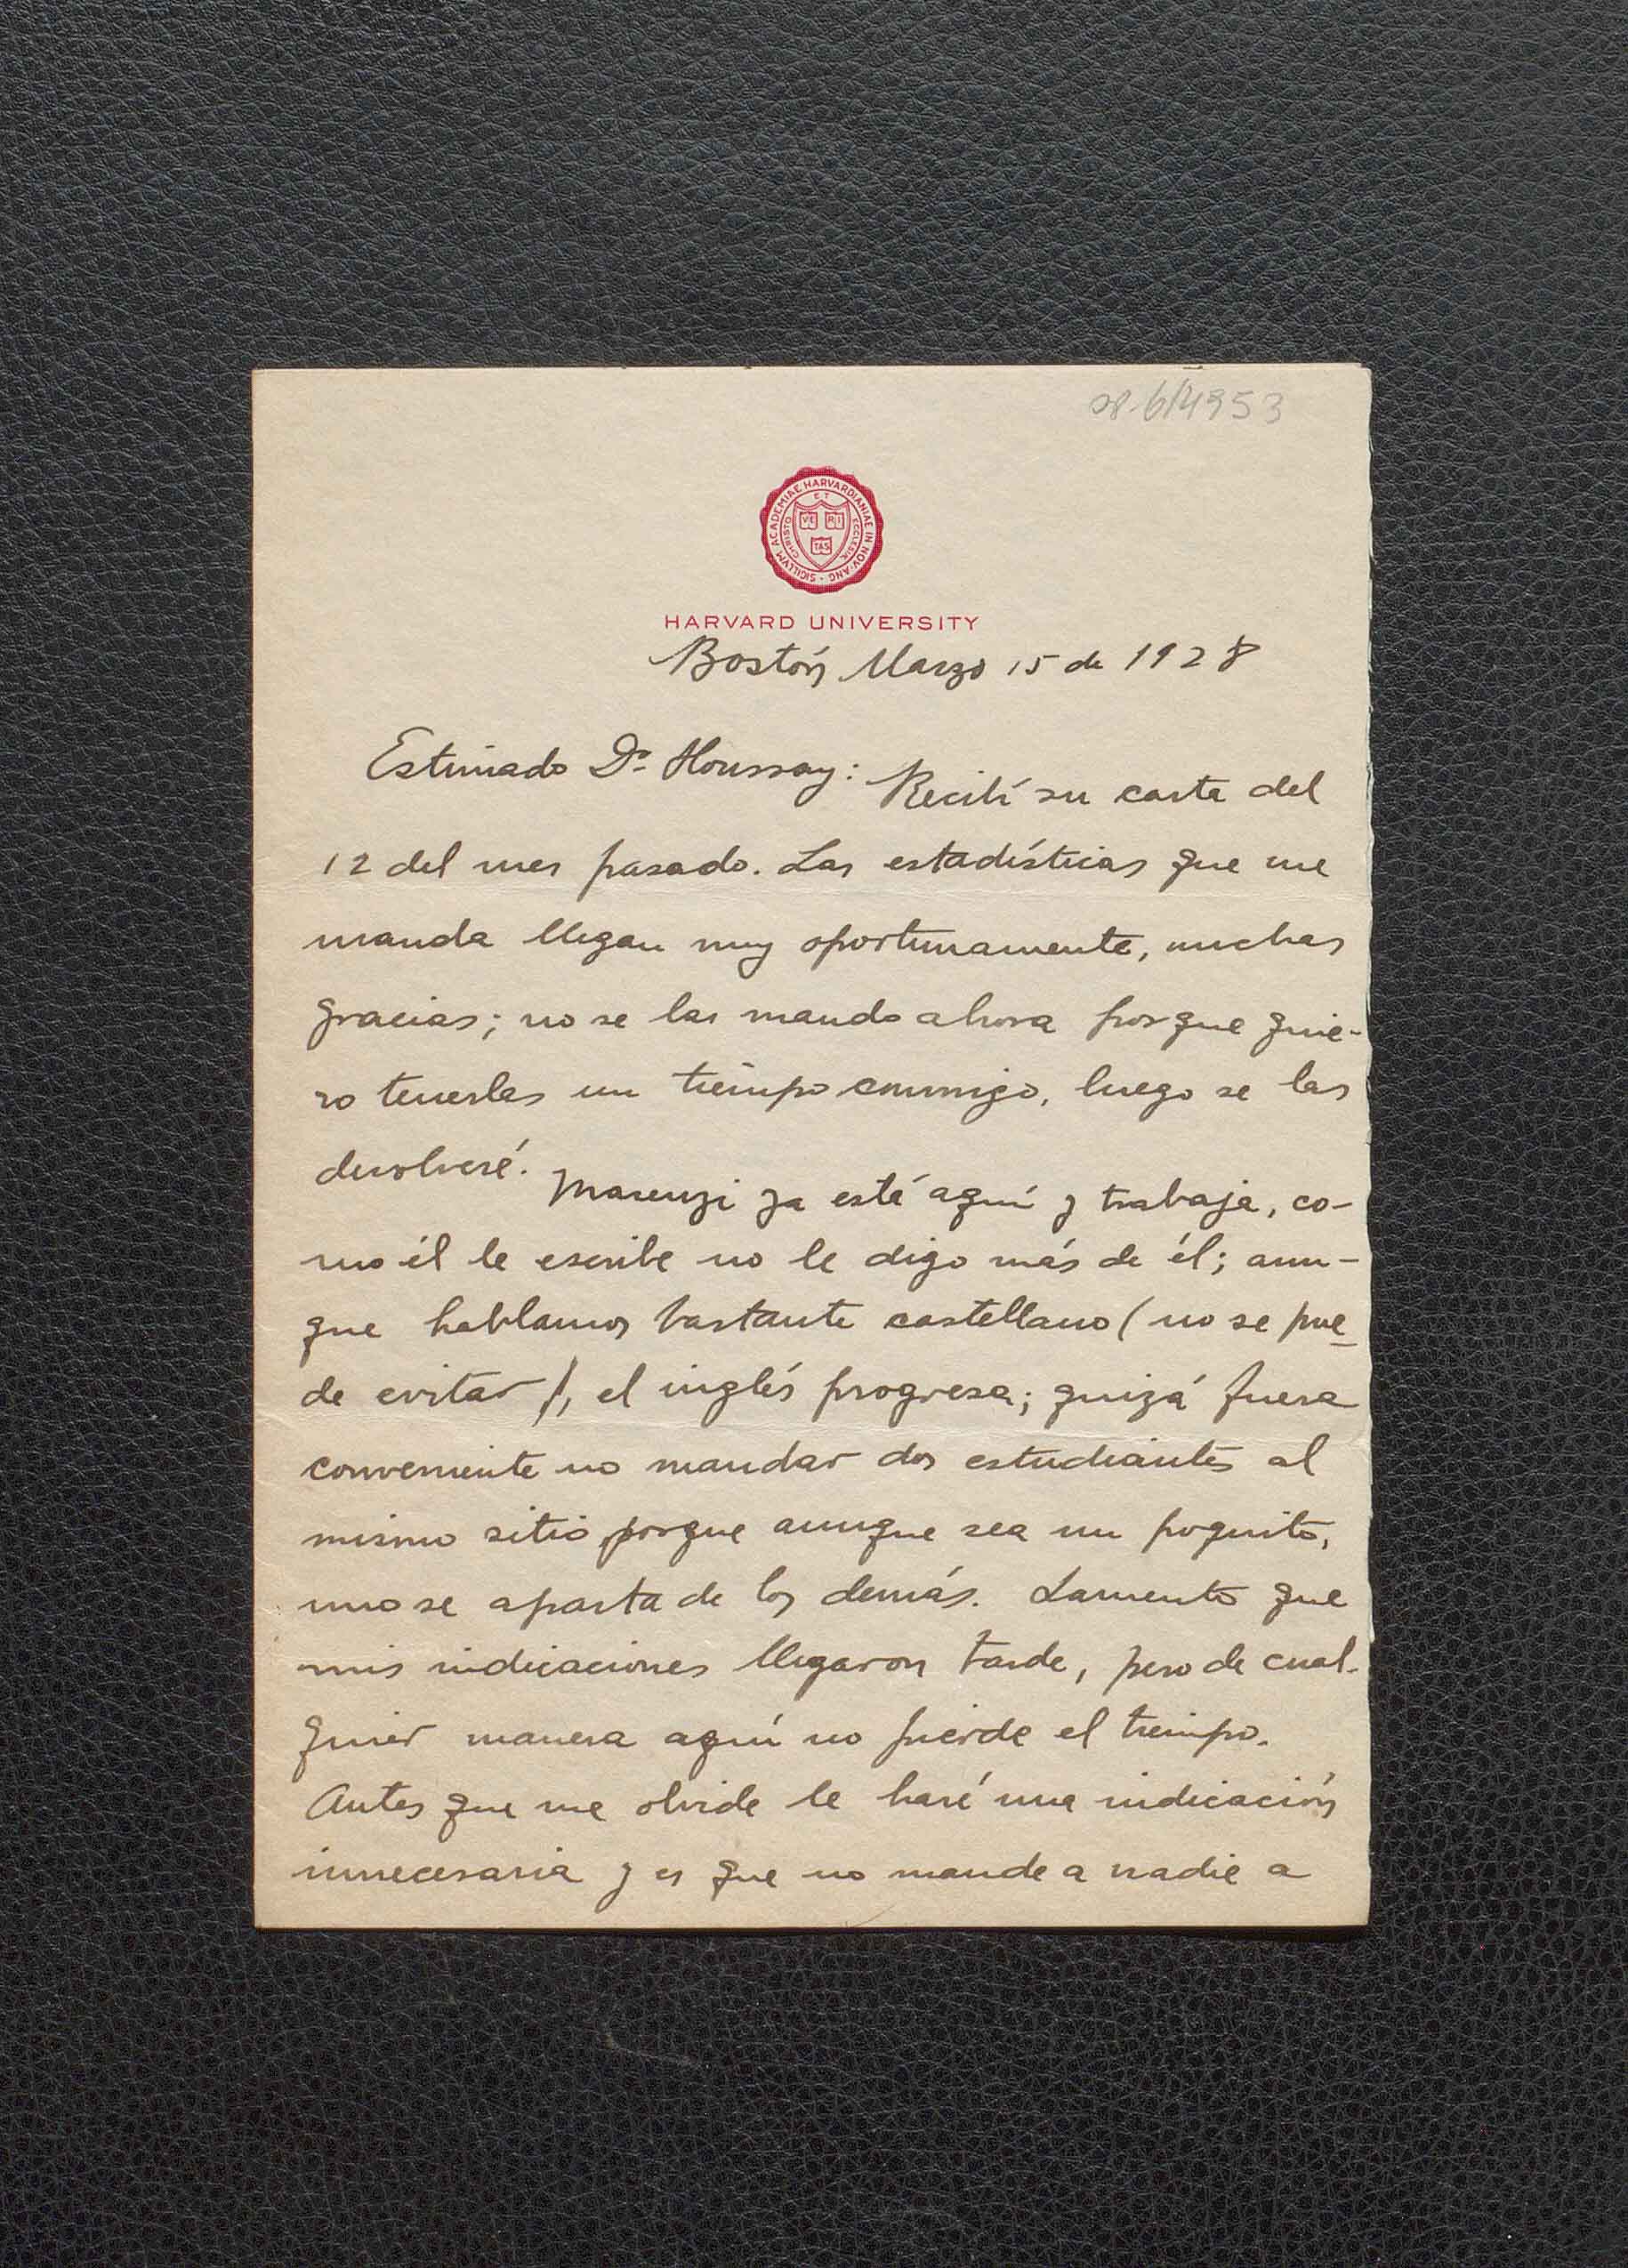 08-6/4953
SIGILLVM ACADEMIAE HARVARDIANAE IN NOV. ANG.
CHRISTO ET ECCLESIAE
VE RI
TAS
HARVARD UNIVERSITY
Bostón Marzo 15 de 1928
Estimado Dr. Houssay: Recibí su carta del
12 del mes pasado. Las estadísticas que me
manda llegan muy oportunamente, muchas
gracias; no se las mando ahora porque quie-
ro tenerlas un tiempo conmigo, luego se las
devolveré.
Marenzi ya está aquí y trabaja, co-
mo él le escribe no le digo más de él; aun-
que hablamos bastante castellano (no se pue
de evitar), el inglés progresa; quizá fuera
conveniente no mandar dos estudiantes al
mismo sitio porque aunque sea un poquito,
uno se aparta de los demás. Lamento que
mis indicaciones llegaron tarde, pero de cual-
quier manera aquí no pierde el tiempo.
Antes que me olvide le haré una indicación
innecesaria y es que no mande a nadie a